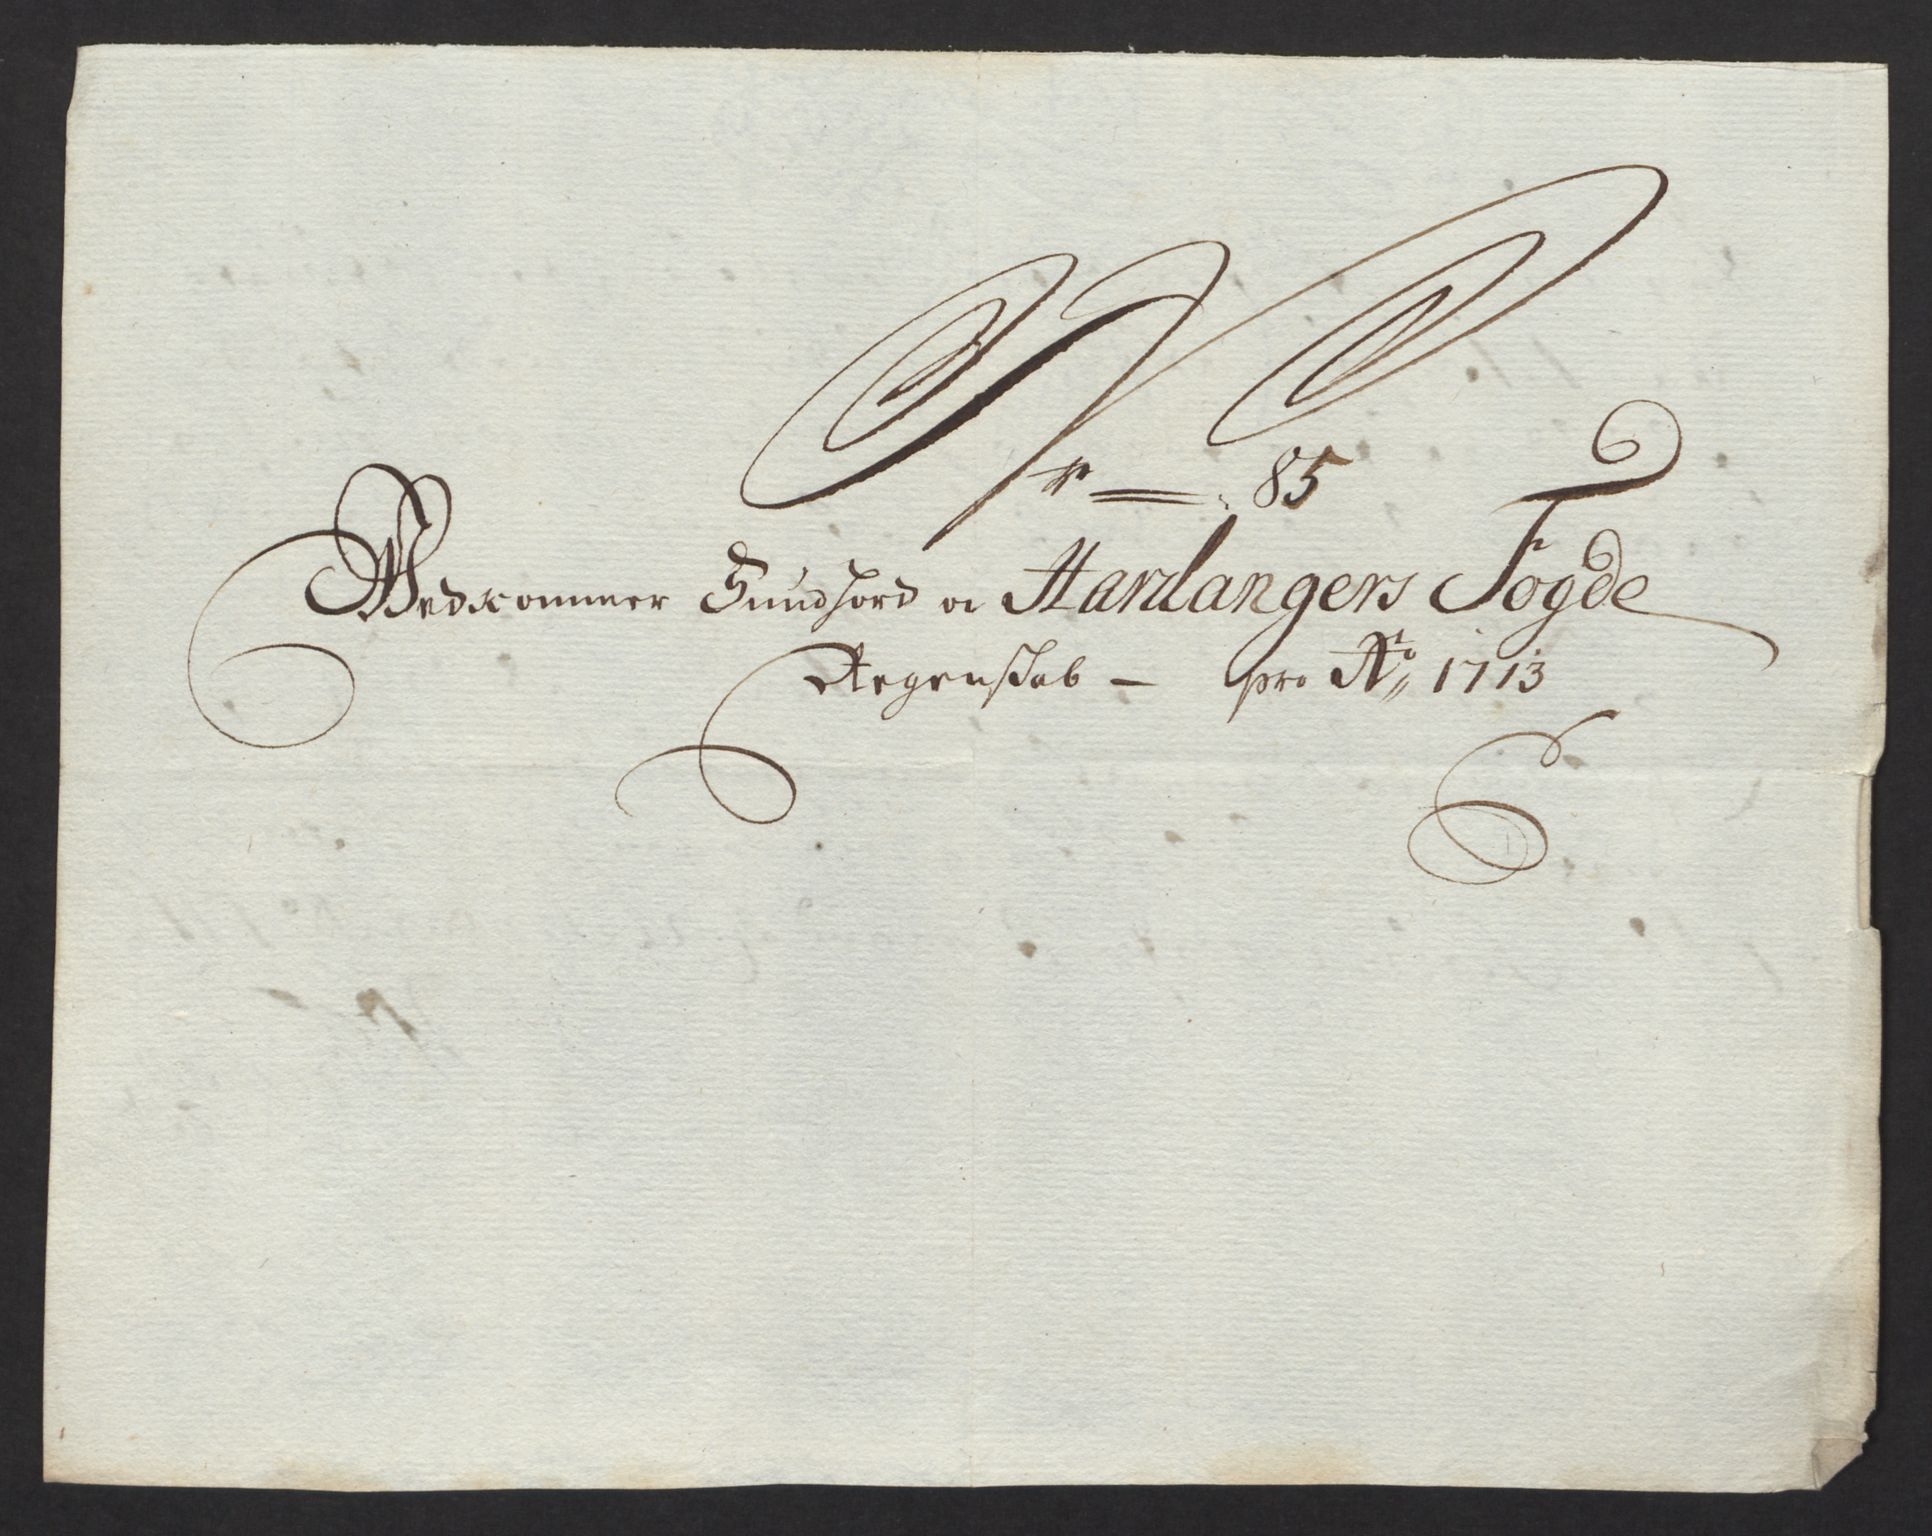 Nr 85
Vedkommer Sundhord oc Hardangers Fogde
Regenskab – pro Ao 1713